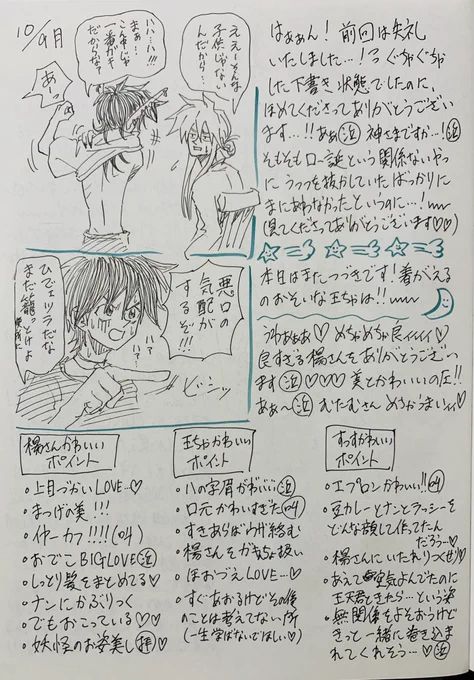 10/9月
ええーそんな
子供じゃない
んだから…
ハハ…ハ!!
まぁ…
こん中じゃ
一番ガキ
だからな?
あっ
悪口の
気配が
するぞ!!!
ハァ…
ハァ…
ビシッ
ひでェツラだな
まだ籠っとけよ
はぁぁん! 前回は失礼
いたしました…!
ぐちゃぐちゃ
した下書き状態でしたのに、
ほめてくださってありがとうござい
ます…!! ああ(浜) 神さまですか…!(浜)
そもそもロー誕という関係ないやつ
にうつつを抜かしていたばっかりに
まにあわなかったというのに…!
見てくださってありがとうございます♡♡
本日はまたつづきです! 着がえる
のおそいな王ちゃは!!
うわぁぁぁ♡ めちゃめちゃ良ィィィィ♡
良すぎる楊さんをありがとうござい
ます(浜)♡♡♡ 美とかわいいの圧!!
ああ〜(浜) むたむさん めちゃうまいィィ♡
楊さんかわいい
ポイント
・上目づかいLOVE…♡
・まつげの美!!!
・イヤーカフ!!!!(04)
・おでこBIG LOVE(浜)
・しっとり髪をまとめてる♡
・ナンにかぶりつく
・でもおこっている♡♡
・妖怪のお姿美し(拝)♡
王ちゃかわいい
ポイント
・八の字眉がかわいい(浜)
・口元かわいすぎた(04)
・すきあらばウザ絡む
・楊さんをガキちょ扱い
・ほおづえLOVE…♡
・すぐあおるけどその後
のことは考えてない所
(一生学ばないでほしい♡)
すっすかわいい
ポイント
・エプロンかわいい!!(04)
・豆カレーとナンとラッシーを
どんな顔して作ってたん
だろう…♡
・楊さんにいたれりつくせり♡
・あえて空気よんでたのに
王天君ときたら…という姿
・無関係をよそおうけど
きっと一緒に巻き込ま
れてくれそう…♡(浜)